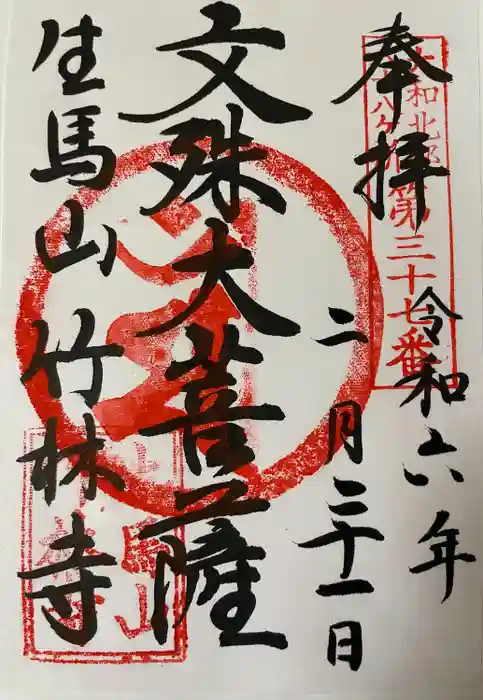 奉拝
大和北部八十八ヶ所第三十七番
令和六年
二月二十一日
文殊大菩薩
生馬山竹林寺